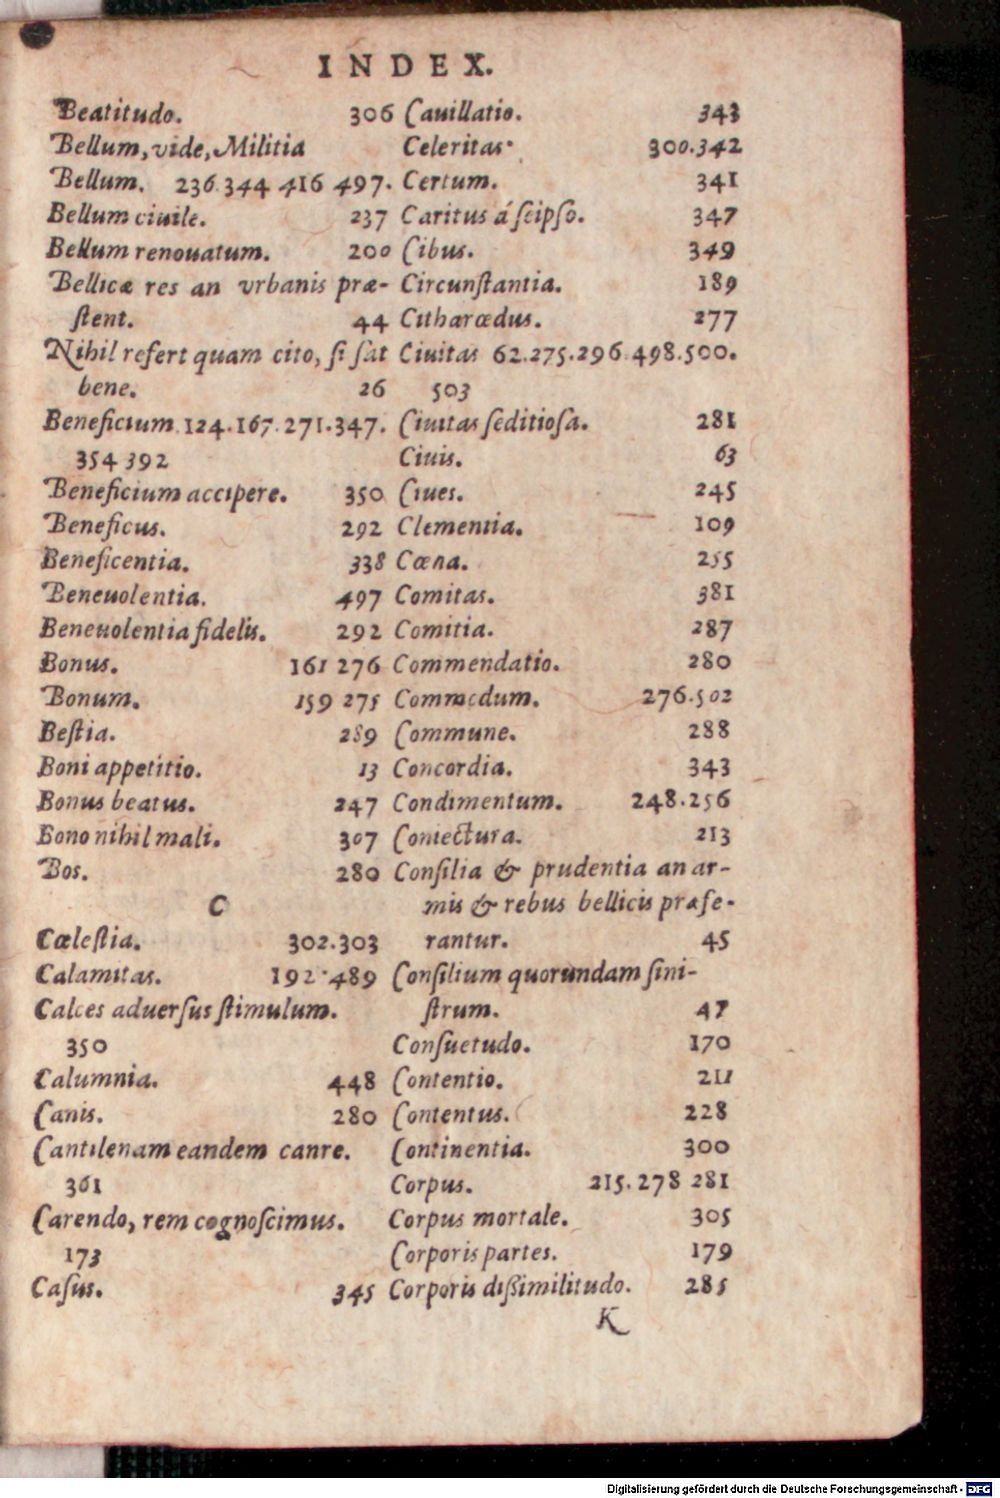 INDEX.
Beatitudo. 306
Bellum, vide, Militia
Bellum. 236.344 416 497.
Bellum ciuile. 237
Bellum renouatum. 200
Bellicæ res an vrbanis præ-
ſtent. 44
Nihil refert quam cito, ſi ſat
bene. 26
Beneficium 124.167.271.347.
354 392
Beneficium accipere. 350
Beneficus. 292
Beneficentia. 338
Beneuolentia. 497
Beneuolentia fidelis. 292
Bonus. 161 276
Bonum. 159 275
Beſtia. 289
Boni appetitio. 13
Bonus beatus. 247
Bono nihil mali. 307
Bos. 280
C
Cœleſtia. 302.303
Calamitas. 192.489
Calces aduerſus ſtimulum.
350
Calumnia. 448
Canis. 280
Cantilenam eandem canre.
361
Carendo, rem cognoſcimus.
173
Caſus. 345
Cauillatio. 343
Celeritas. 300.342
Certum. 341
Caritus á ſeipſo. 347
Cibus. 349
Circunſtantia. 189
Citharœdus. 277
Ciuitas 62.275.296.498.500.
503
Ciuitas ſeditioſa. 281
Ciuis. 63
Ciues. 245
Clementia. 109
Cœna. 255
Comitas. 381
Comitia. 287
Commendatio. 280
Commodum. 276.502
Commune. 288
Concordia. 343
Condimentum. 248.256
Coniectura. 213
Conſilia & prudentia an ar-
mis & rebus bellicis præfe-
rantur. 45
Conſilium quorundam ſini-
ſtrum. 47
Conſuetudo. 170
Contentio. 211
Contentus. 228
Continentia. 300
Corpus. 215.278 281
Corpus mortale. 305
Corporis partes. 179
Corporis diſſimilitudo. 285
K
Digitalisierung gefördert durch die Deutsche Forschungsgemeinschaft - DFG